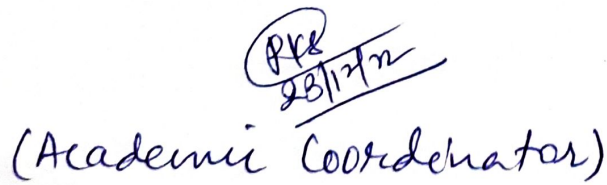 28/12/22
(Academic Coordinator)